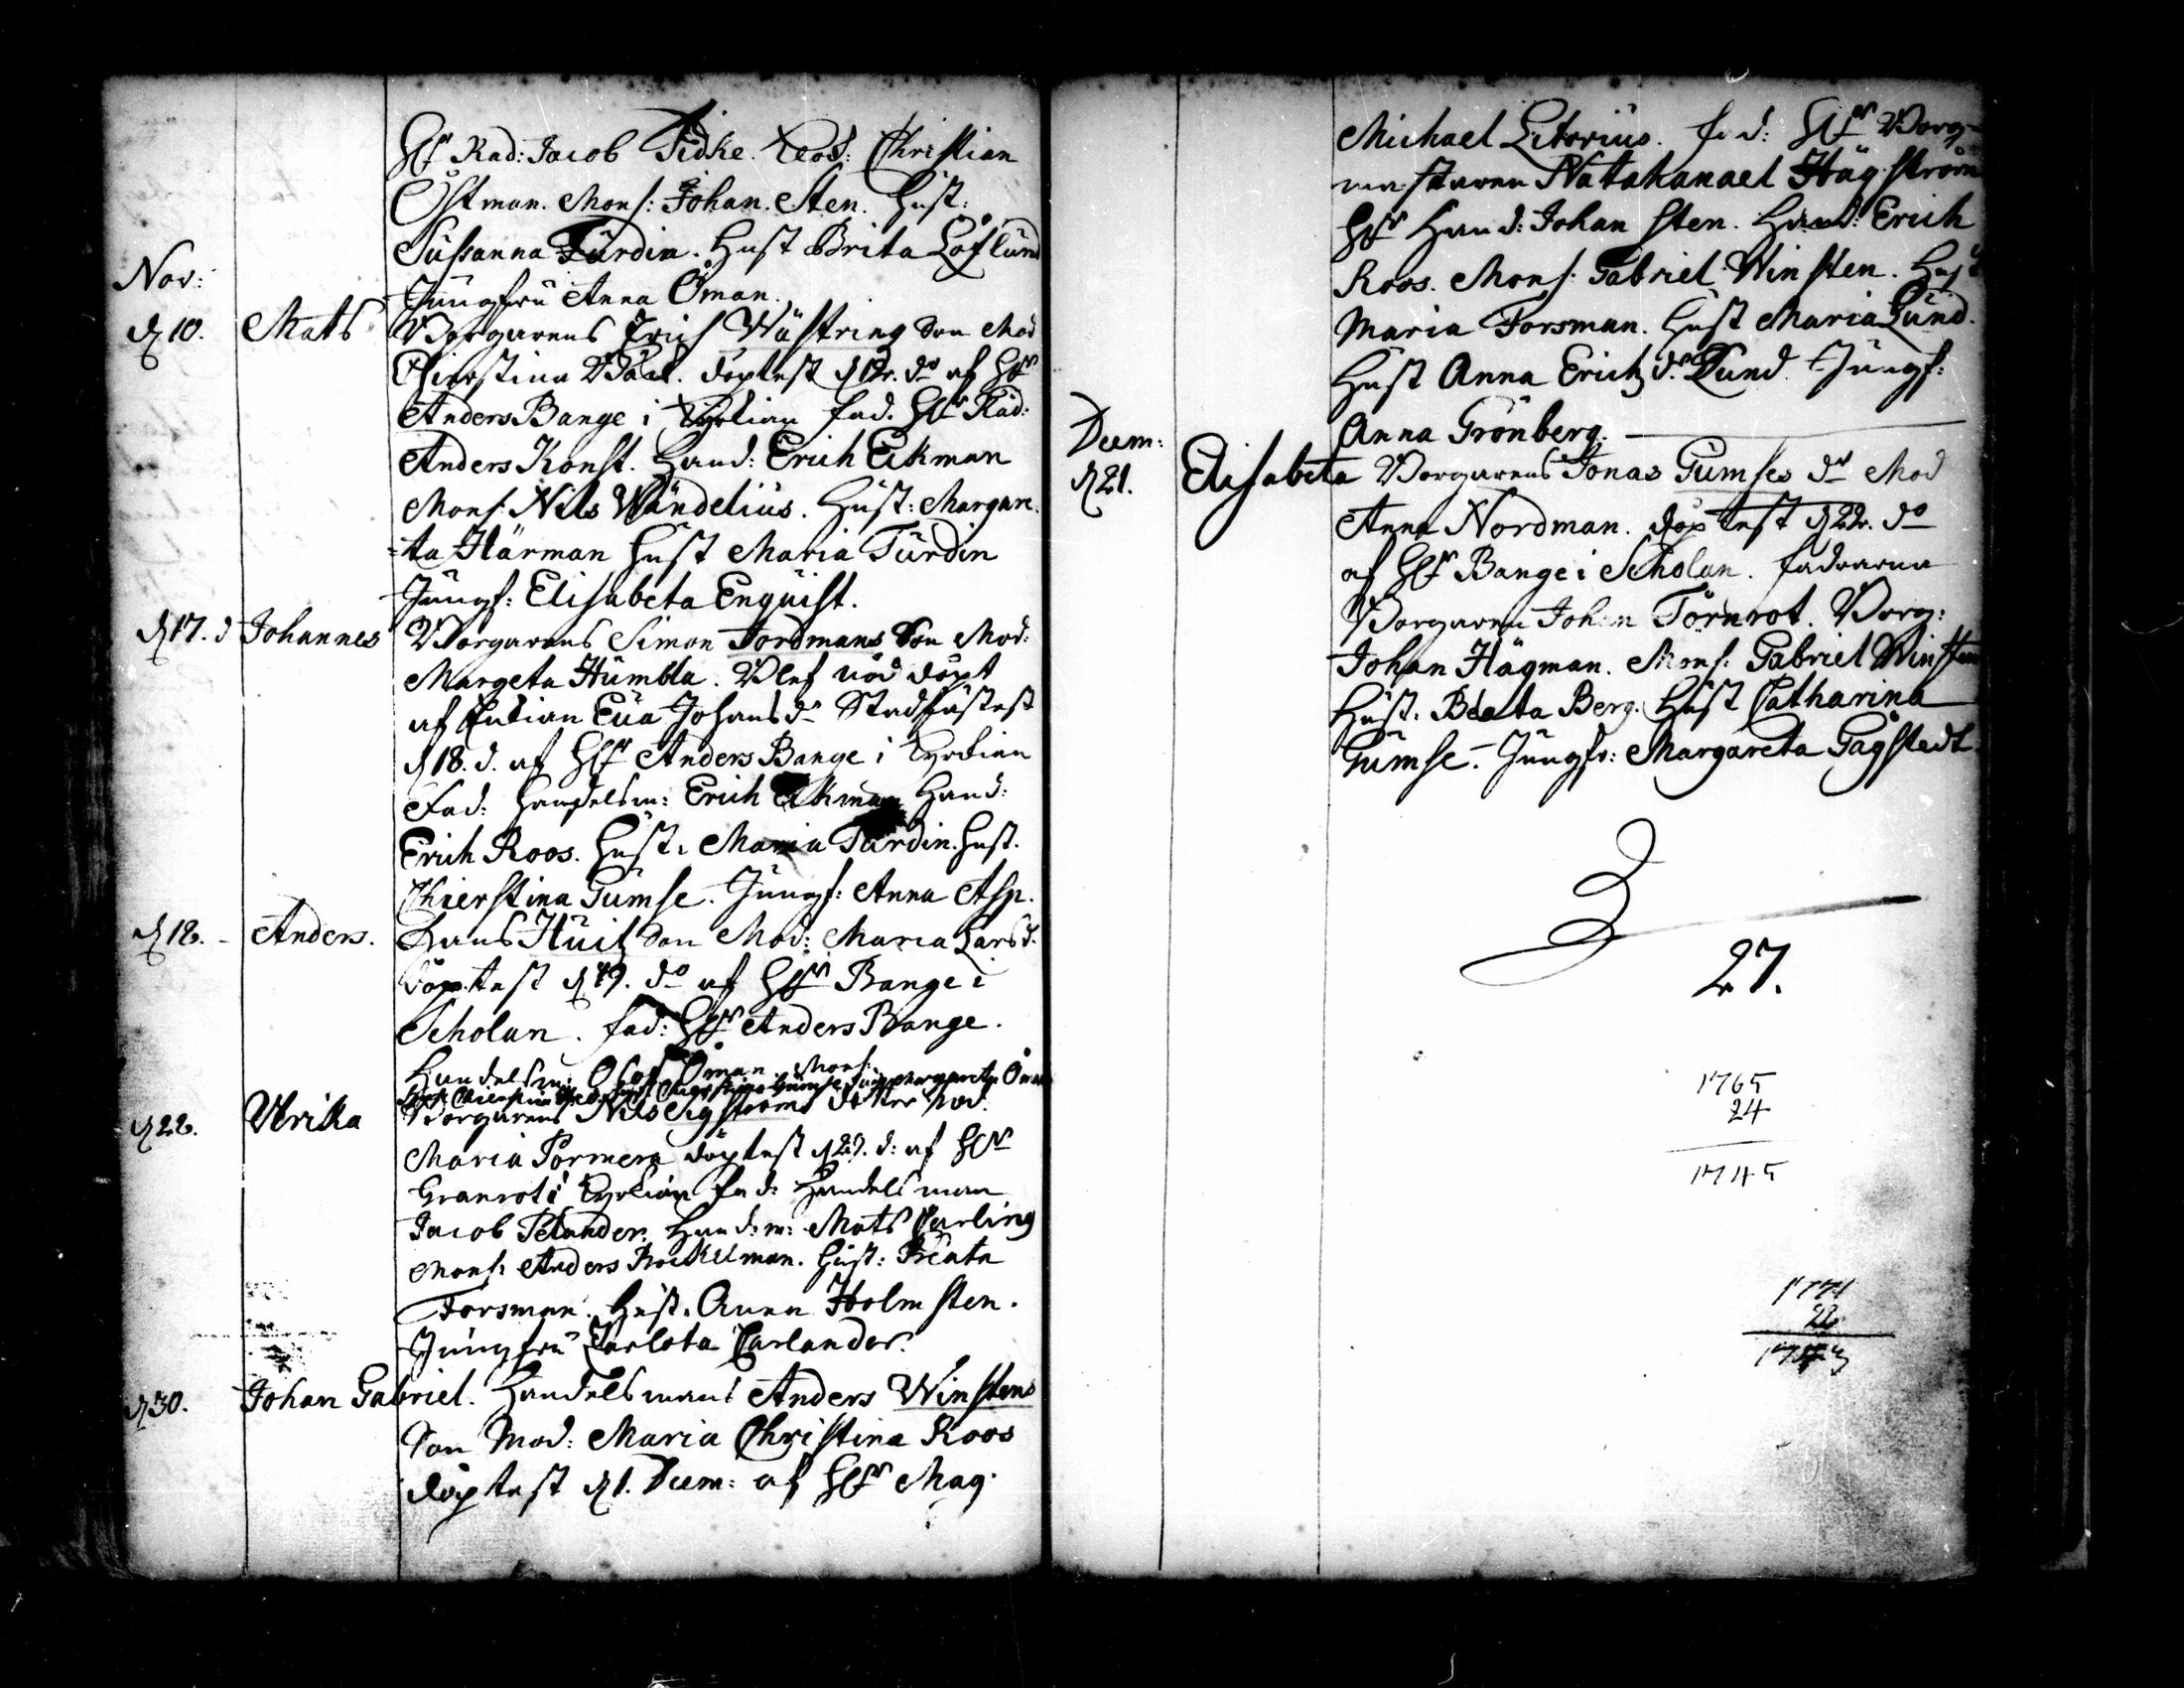 H:r Råd: Jacob Tidke. Christian
Östman. Mons: Johan. Sten. Hust:
Sussanna Turdin. Hust Brita Löflund
Jungfru Anna Öman.
Nov:
d 10. Mats Borgarens Erich Wästring Son Mod
Chierstina döptest d 12. d:o af H:r
Anders Bange i Kyrkian fad. H:r Råd:
Anders Konst. Hand: Erich Ekman
Mons: Nils Wändelius. Hust: Margare
=ta Härman Hust Maria Turdin
Jungf: Elisabeta Enquist.
d 17. d Johannes Borgarens Simon Fordmans Son Mod:
Margeta Humbla. Blef nöd döpt
af Eua Johans d:r Stadfästest
d 18. d. af H:r Anders Bange i Kyrkian
Fad: Handelsm: Erich Ekman Hand:
Erich Roos. Hust: Maria Turdin. Hust.
Chierstina Gumse. Jungf: Anna Asp.
d 18. - Anders. Hans Huit Son Mod: Maria Lars d.
döptest d 19. d:o af H:r Bange i
Scholan. fad: H:r Anders Bange.
Handelsm: Olof Öman. Mons:
Hust Chierstina Hust Chierstina Gumse Jungf Margareta Öman
d 22. Ulrika Borgarens Nils Sigströms dotter Mod.
Maria Pormera döptest d 23. d: af H:r
Granrot i Kyrkian fad: Handelsman
Jacob Pelander. Hand:m: Mats Carling
Mons: Anders Hust: Beata
Forsman. Hust. Anna Holmsten.
Jungfru Carlota Carlander.
d 30. Johan Gabriel. Handelsmans Anders Winstens
Son Mod: Maria Christina Roos
döptest d 1. Decem: af H:r Mag.
Michael Litorius. fad: H:r Borg-
mästaren Natahanael Hägström
H:r Hand: Johan Sten. Hand: Erich
Roos. Mons: Gabriel Winsten. Hust
Maria Forsman. Hust Maria Lund.
Hust Anna Erichs d:r Lund. Jungf:
Anna Grönberg.
Decem:
d 21. Elisabeta Borgarens Jonas Gumses d:r Mod
Anna Nordman. döptest d 22. d:o
af H:r Bange i Scholan. fadrarna
Borgaren Johan Törnrot. Borg:
Johan Hägman. Mons: Gabriel Winsten
Hust. Beata Berg. Hust Catharina
Gumse. Jungfr: Margareta Gagstedt.
27.
1765
24
1745
1771